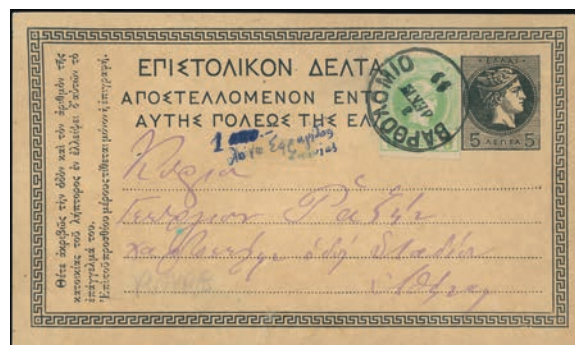 ΕΠΙΣΤΟΛΙΚΟΝ ΔΕΛΤΑ
ΑΠΟΣΤΕΛΛΟΜΕΝΟΝ ΕΝΤ
ΑΥΤΗΣ ΠΟΛΕΩΣ ΤΗΣ ΕΛ
ΒΑΡΘΟΛΟΜΙΟ
ΕΛΛΑΣ
5 ΛΕΠΤΑ 5
1
λόγω Σφραγίδος
Κύριον
Γεώργιον
ὁδὸς Σταδίου
Ἀθήνας
Θέτε ἀκριβῶς τὴν ὁδὸν καὶ τὸν ἀριθμὸν τῆς
κατοικίας τοῦ λήπτορος ἐν ἐλλείψει δ' αὐτῶν τὸ
ἐπάγγελμά του.
Ἐπὶ τοῦ προσθίου μέρους τίθεται μόνον ἡ ἐπιγραφή.